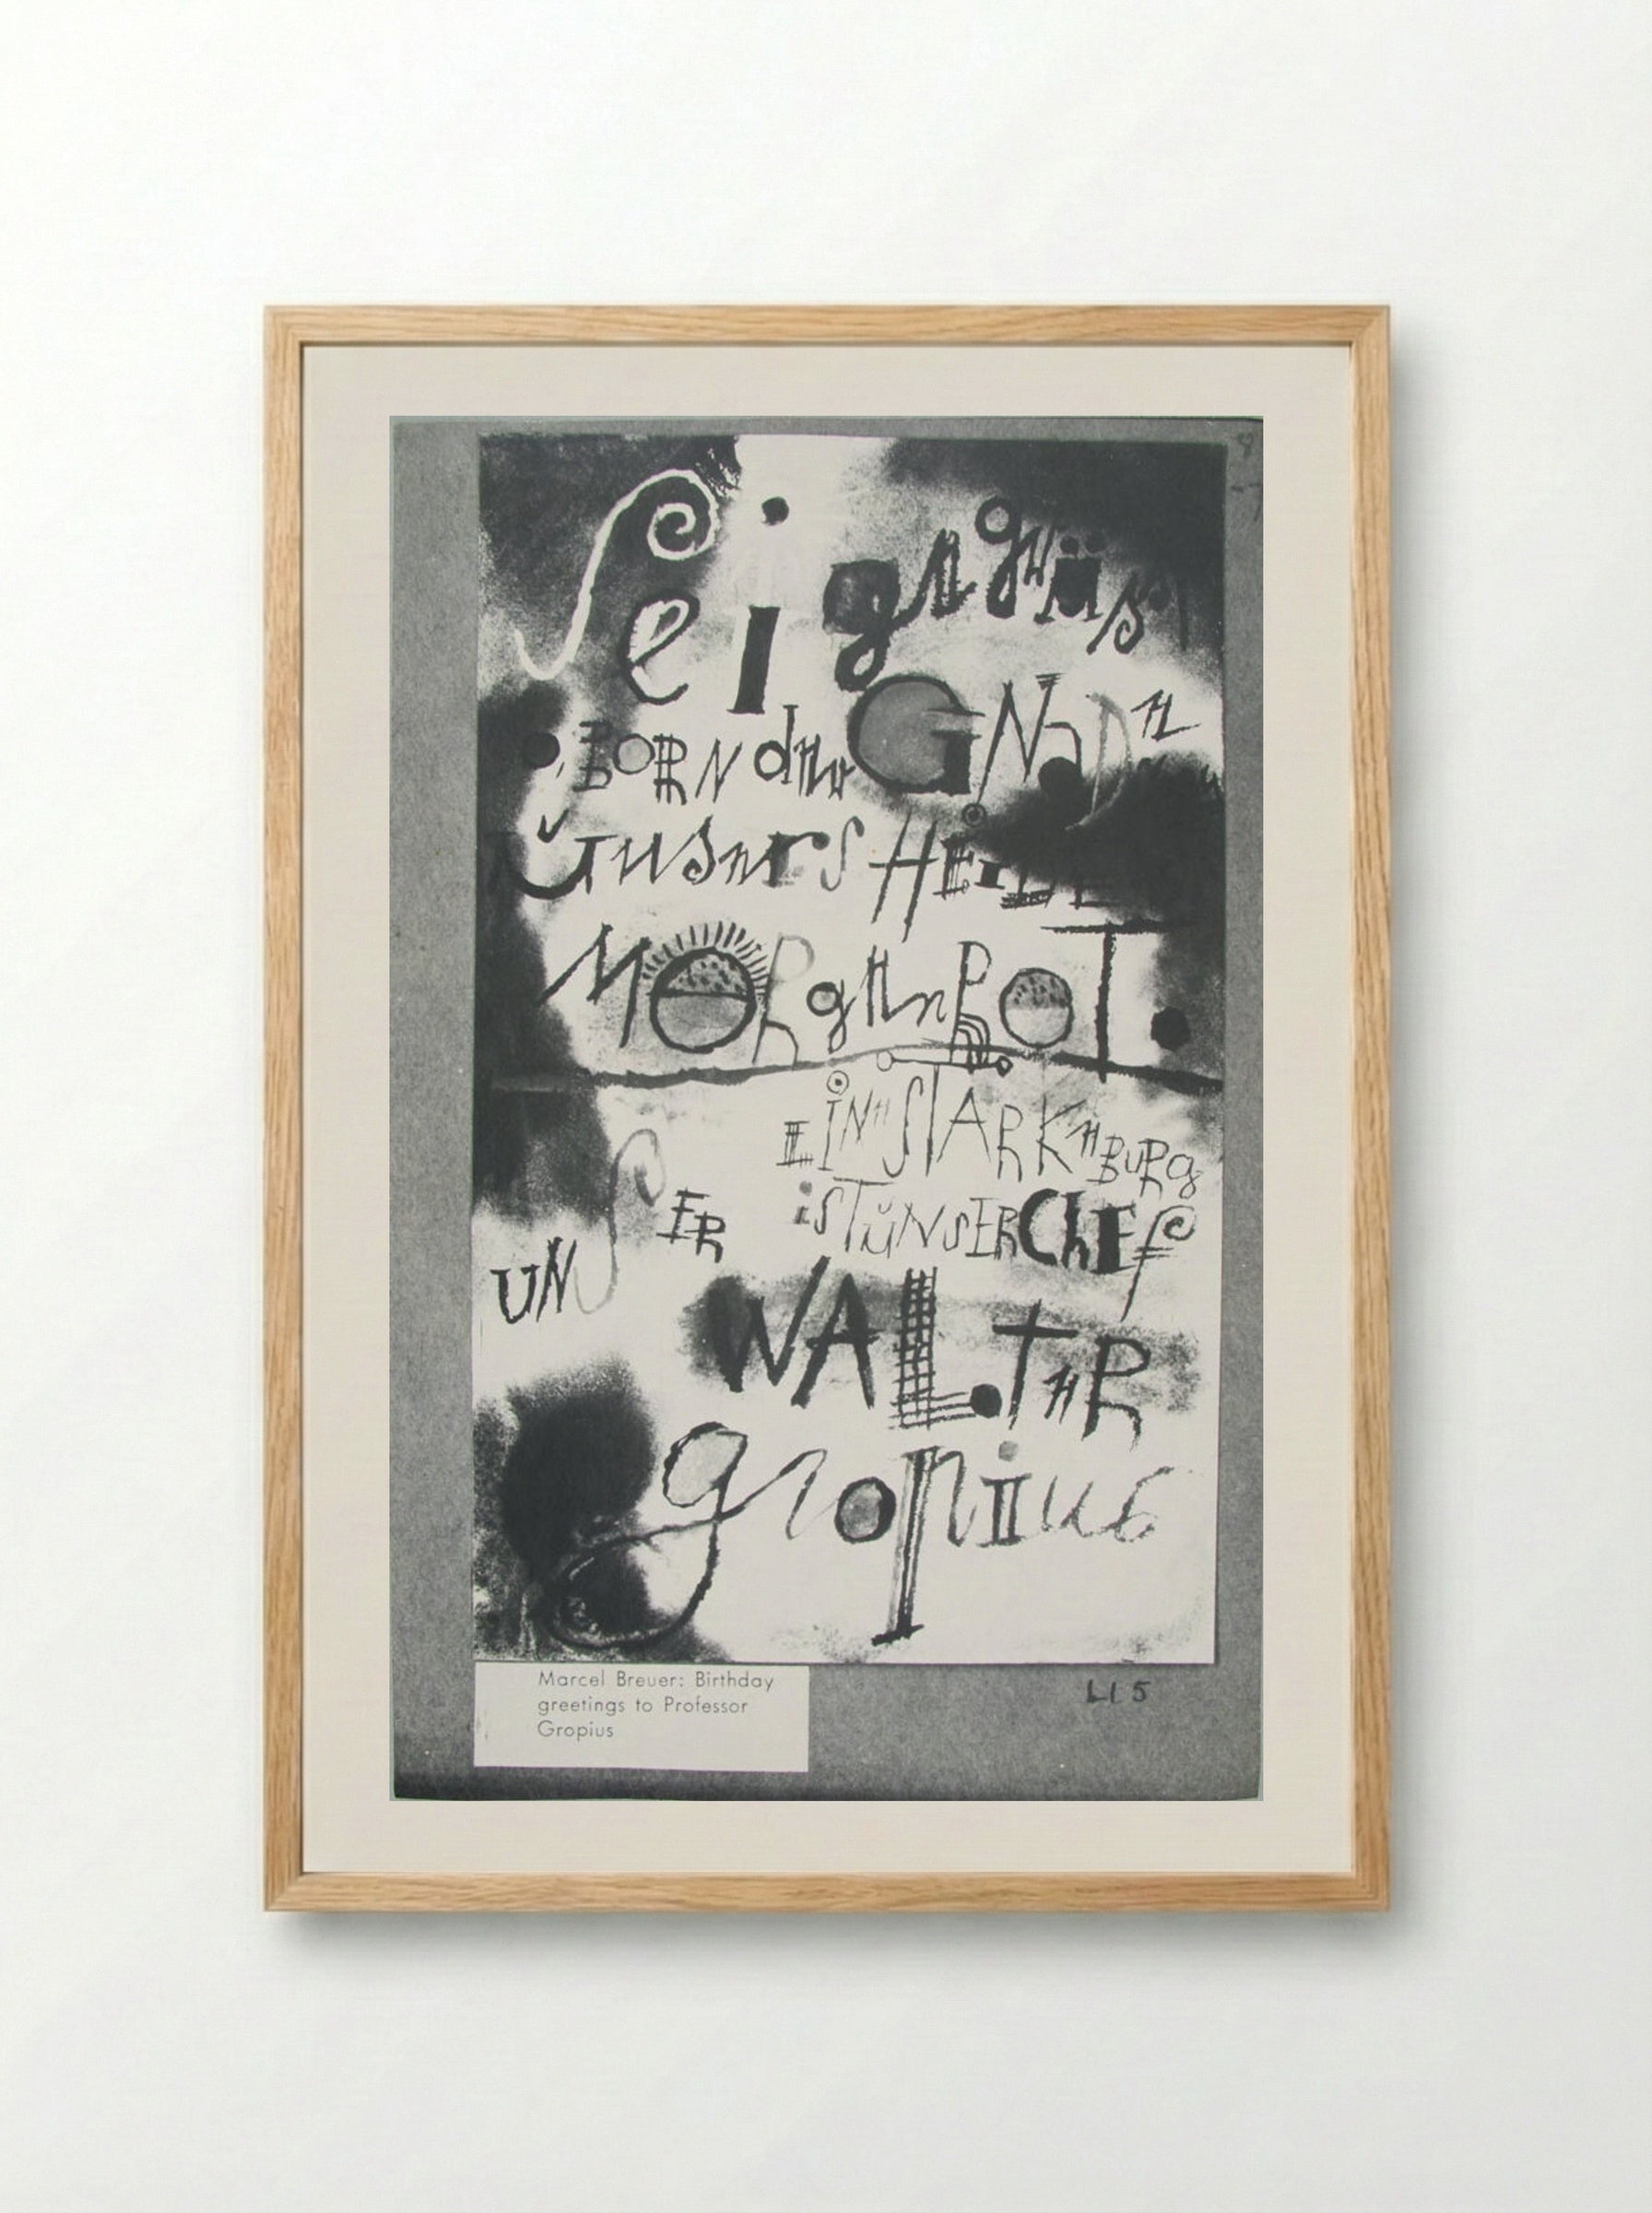 Sei gegrüs
o, BORN der GNADen
unseres HEILES
MORgenROT.
EINe STARKe BURg
isT ŭNSER ChEF
UNSER
WAL.TeR
gropius
Marcel Breuer: Birthday
greetings to Professor
Gropius
L1 5